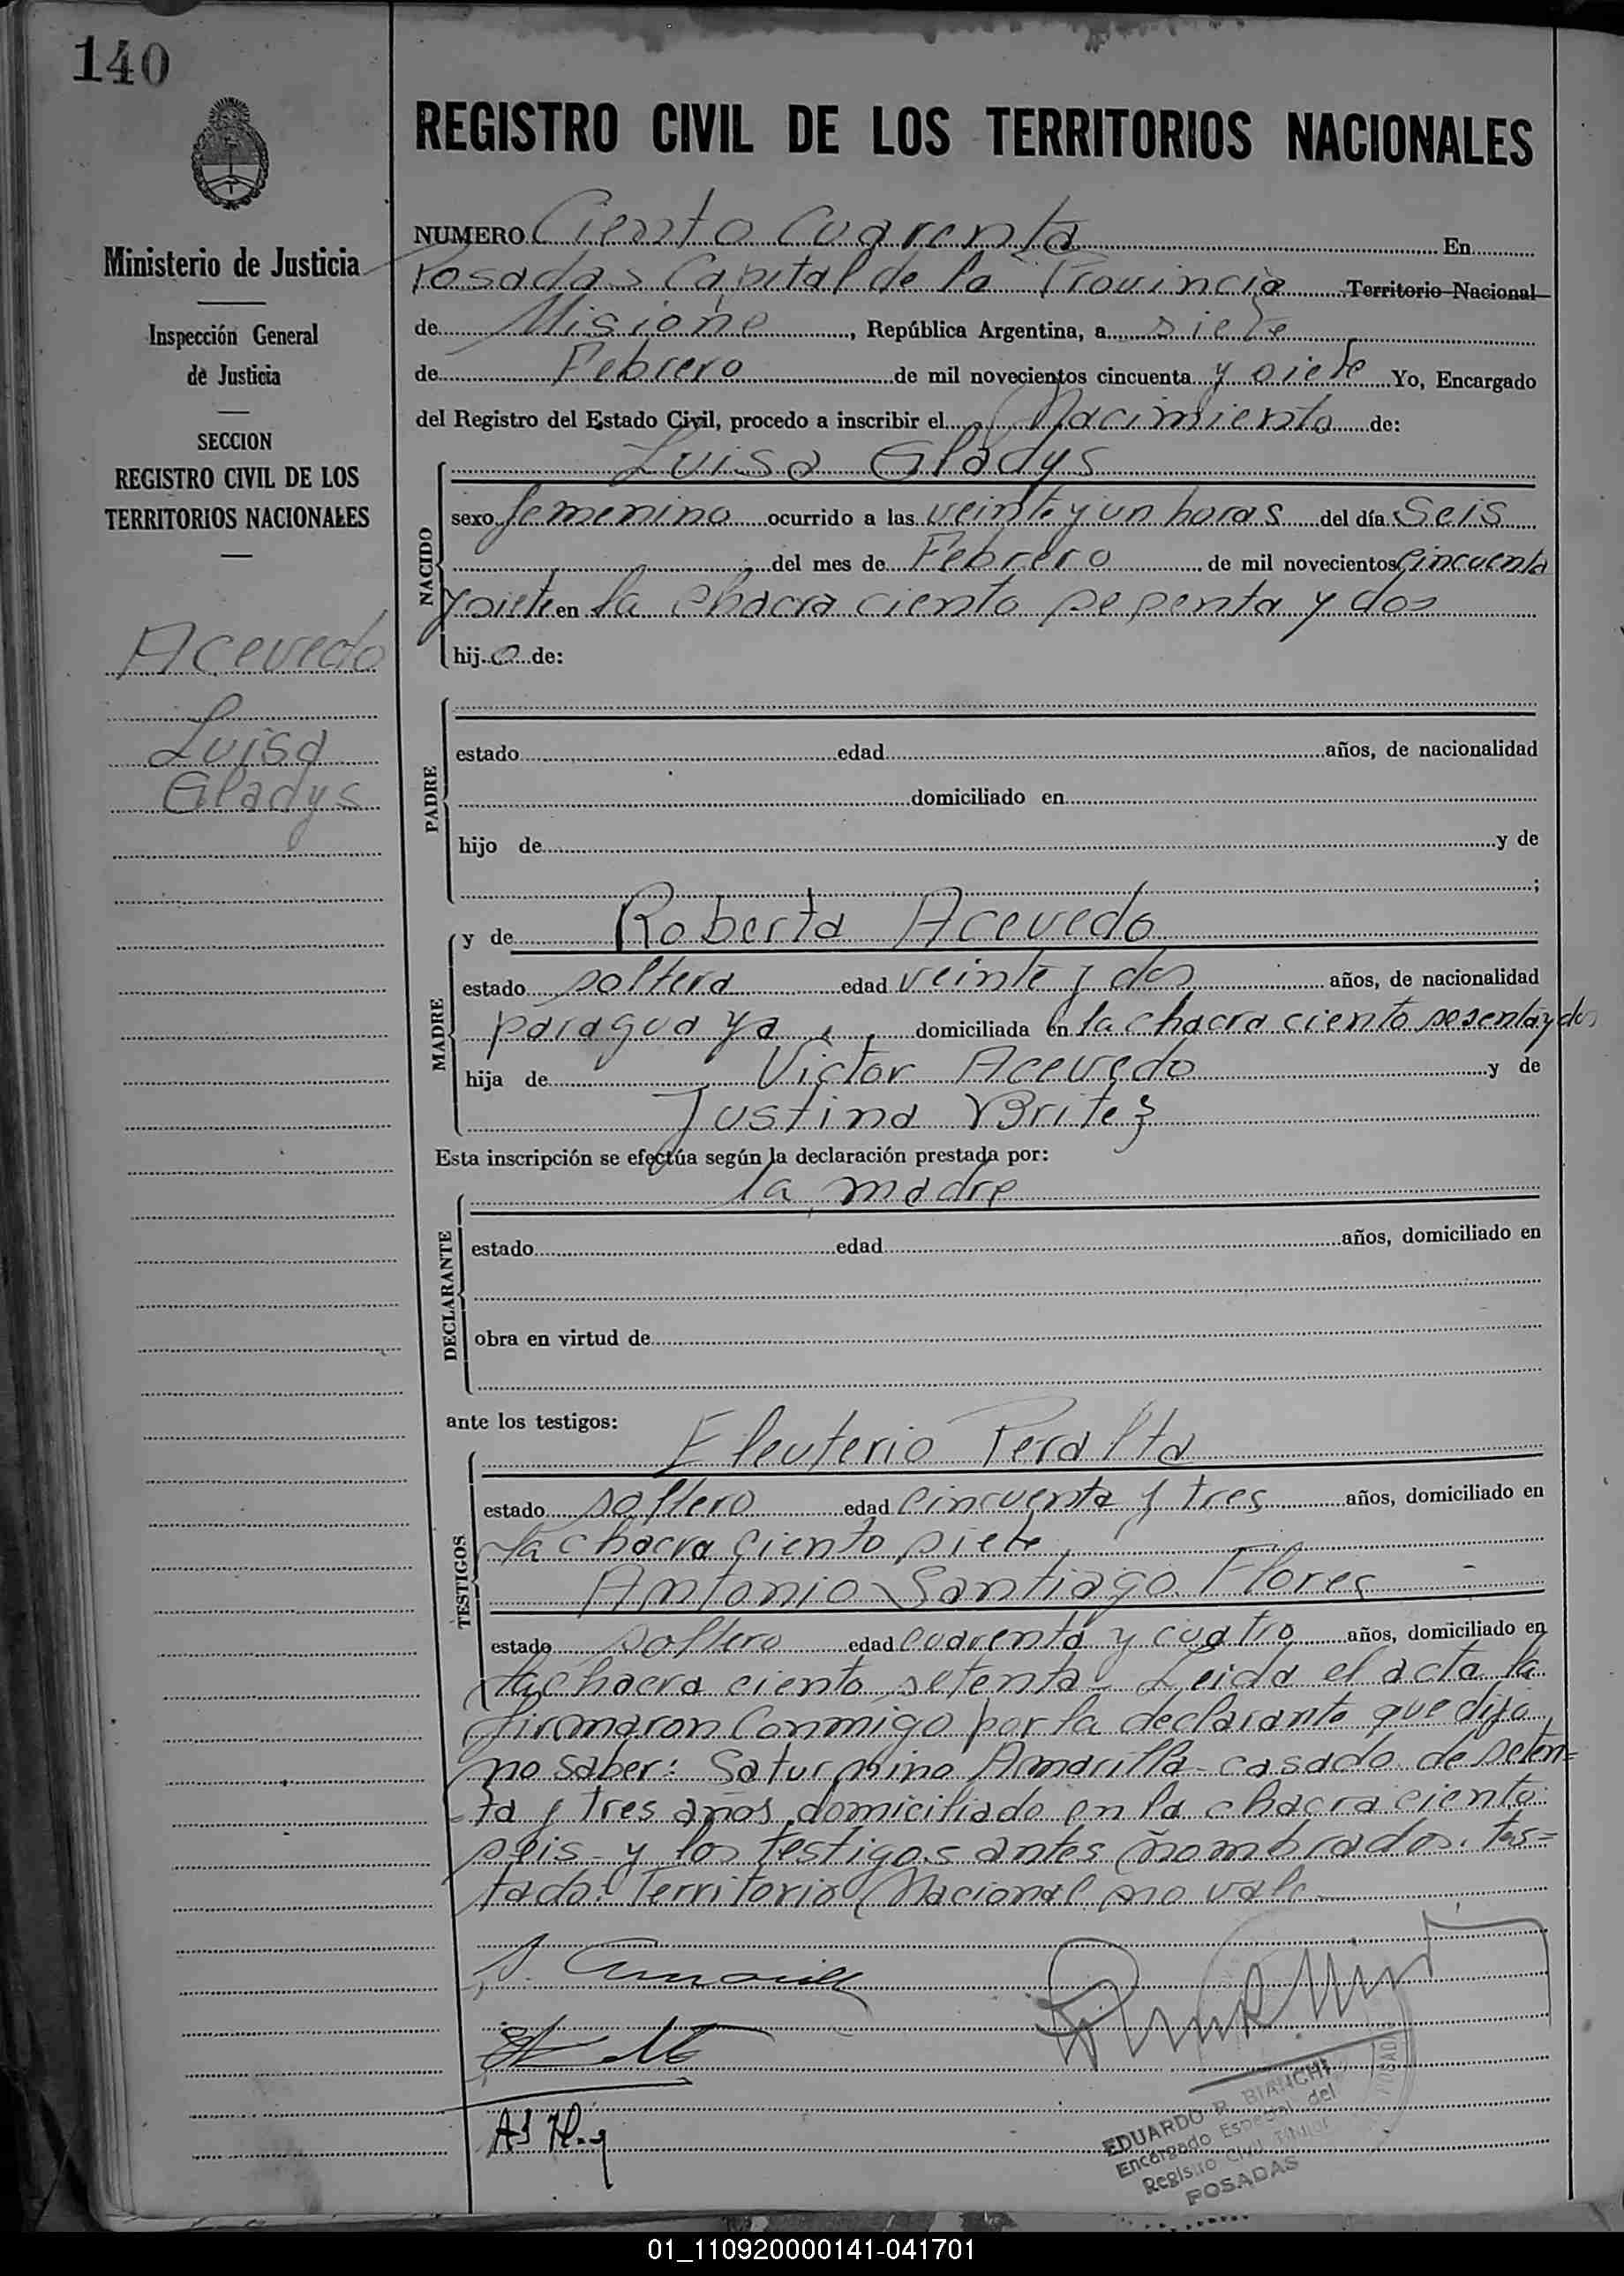 140
REGISTRO CIVIL DE LOS TERRITORIOS NACIONALES
Ministerio de Justicia
Inspección General
de Justicia
SECCION
REGISTRO CIVIL DE LOS
TERRITORIOS NACIONALES
Acevedo
Luisa
Gladys
NUMERO Ciento Cuarenta En
Posadas Capital de la Provincia Territorio Nacional
de Misione, República Argentina, a siete
de Febrero de mil novecientos cincuenta y siete Yo, Encargado
del Registro del Estado Civil, procedo a inscribir el Nacimiento de:
Luisa Gladys
NACIDO
sexo femenino ocurrido a las veinte y un horas del día Seis
del mes de Febrero de mil novecientos cincuenta
y siete en la chacra ciento sesenta y dos
hija de:
PADRE
estado edad años, de nacionalidad
domiciliado en
hijo de y de
;
MADRE
y de Roberta Acevedo
estado soltera edad veinte y dos años, de nacionalidad
paraguaya, domiciliada en la chacra ciento sesenta y dos
hija de Victor Acevedo y de
Justina Britez
Esta inscripción se efectúa según la declaración prestada por:
la madre
DECLARANTE
estado edad años, domiciliado en
obra en virtud de
ante los testigos:
Eleuterio Peralta
TESTIGOS
estado soltero edad cincuenta y tres años, domiciliado en
la chacra ciento siete
Antonio Santiago Flores
estado soltero edad cuarenta y cuatro años, domiciliado en
la chacra ciento setenta - Leida el acta la
firmaron conmigo por la declarante que dijo
no saber: Saturnino Amarilla - casado de seten=
ta y tres años domiciliado en la chacra ciento
seis - y los testigos antes nombrados. tes=
tado: Territorio Nacional no vale
EDUARDO R. BIANCHI
Encargado Especial del
Registro Civil
POSADAS
01_110920000141-041701